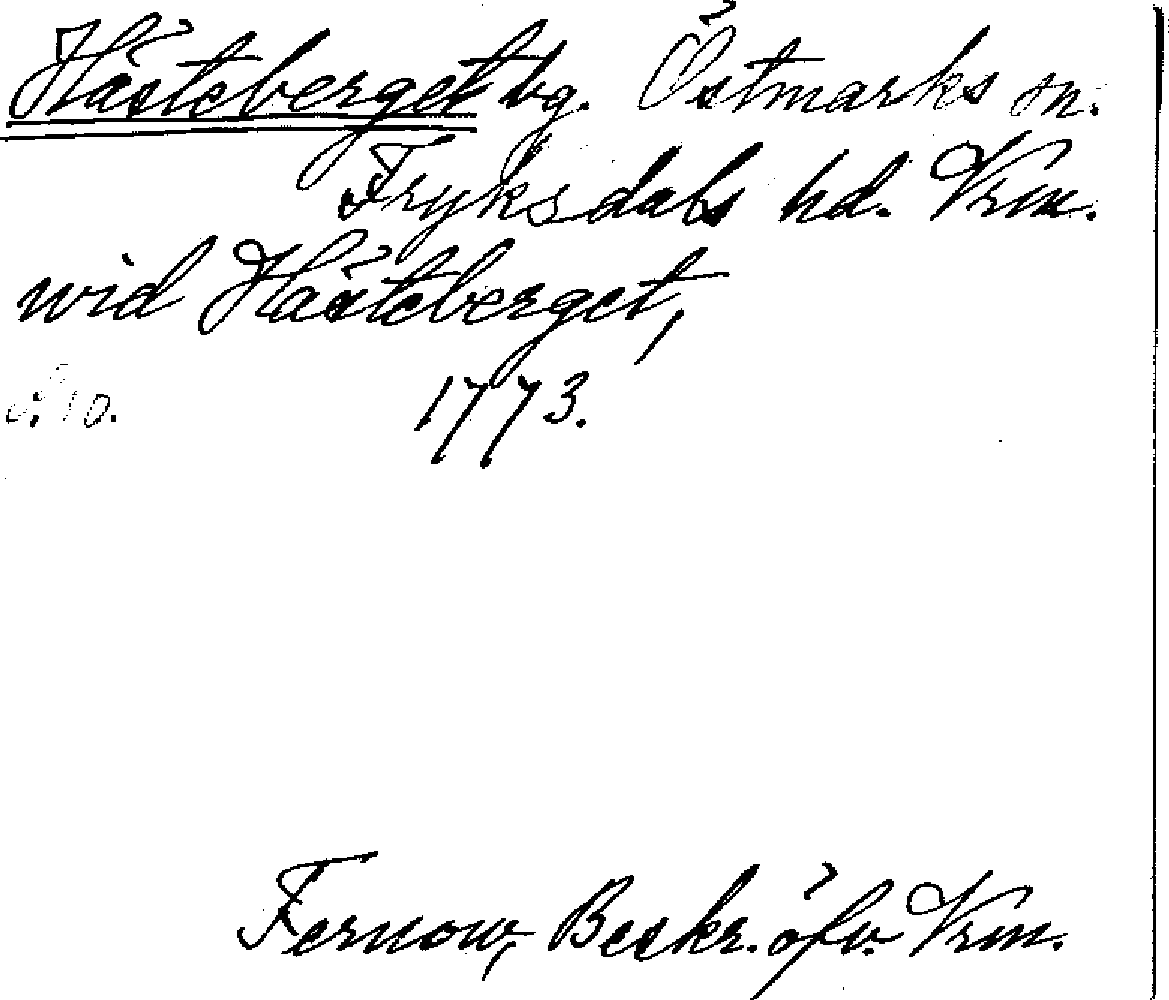 Hästeberget bg. Östmarks sn.
Fryksdals hd. Vrm.
wid Hästeberget,
1773.
Fernow, Beskr. öfv. Vrm.